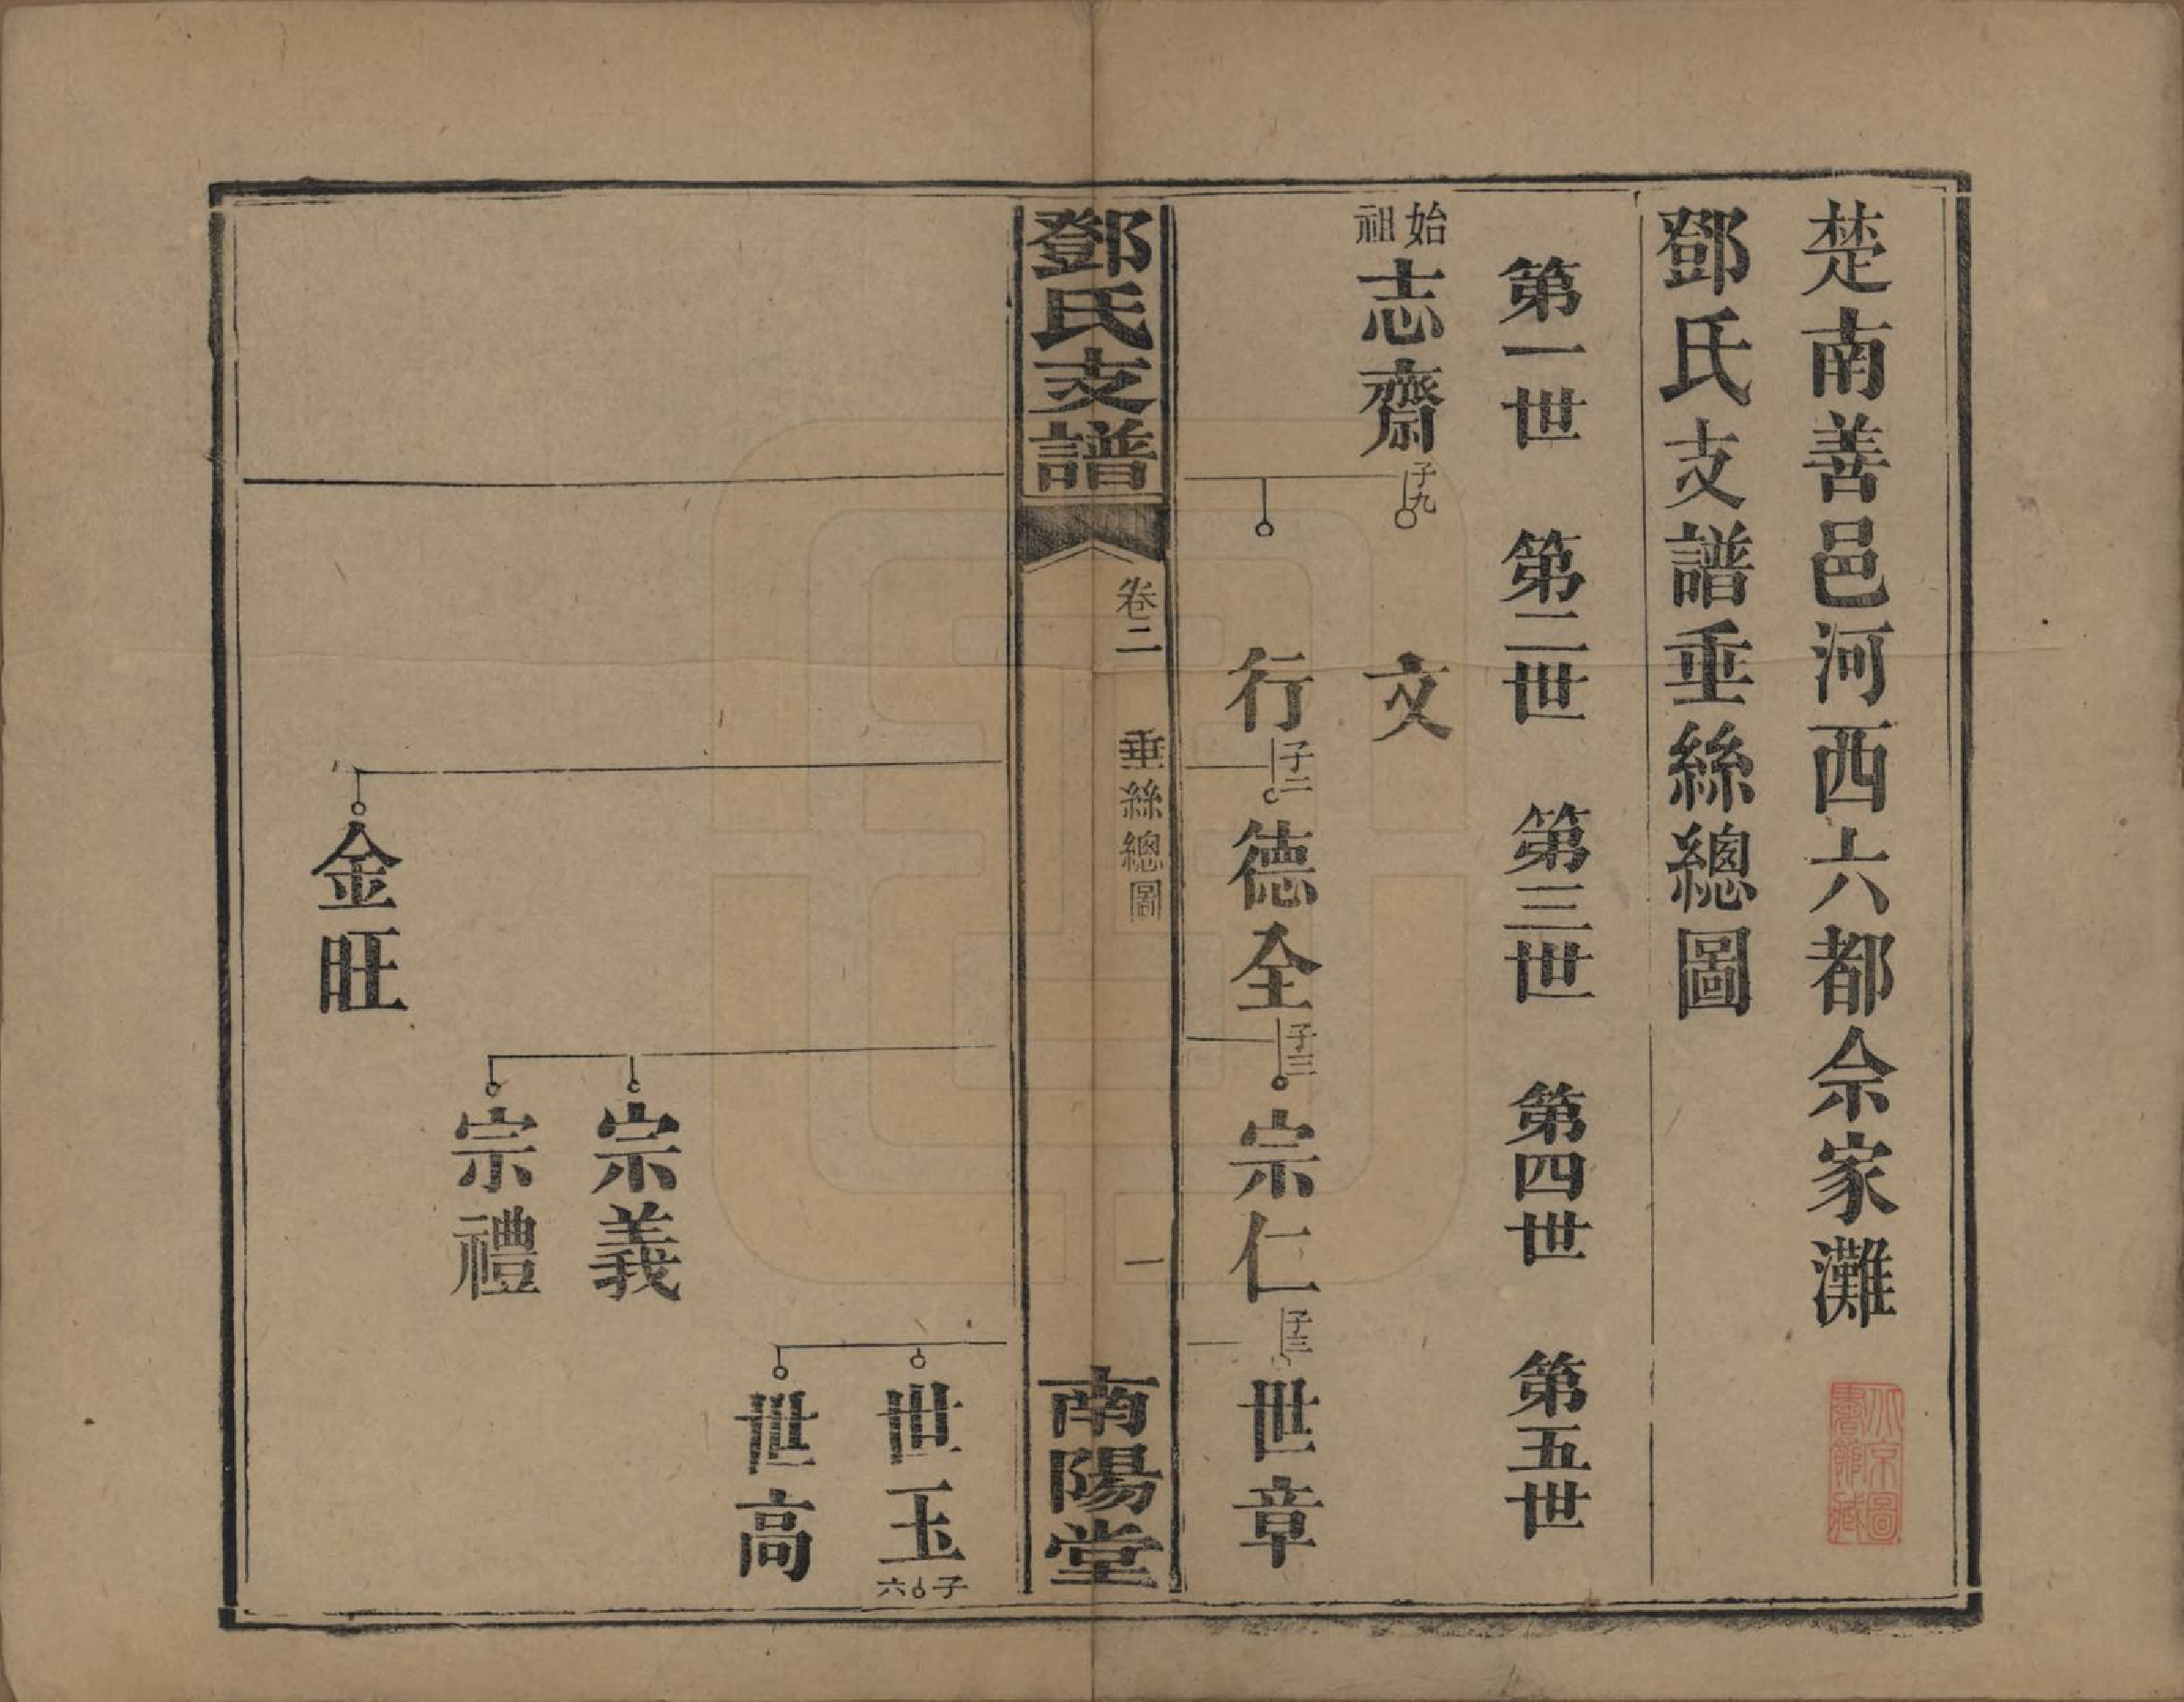 楚南善邑河西六都佘家灘
鄧氏支譜垂絲總圖
第一世 第二世 第三世 第四世 第五世
始祖 志齋 子九 文
行 子二 德全 子三 宗仁 子三 世章
鄧氏支譜 卷二 垂絲總圖 一 南陽堂
世玉 子六
世高
宗義
宗禮
金旺
北京圖書館藏